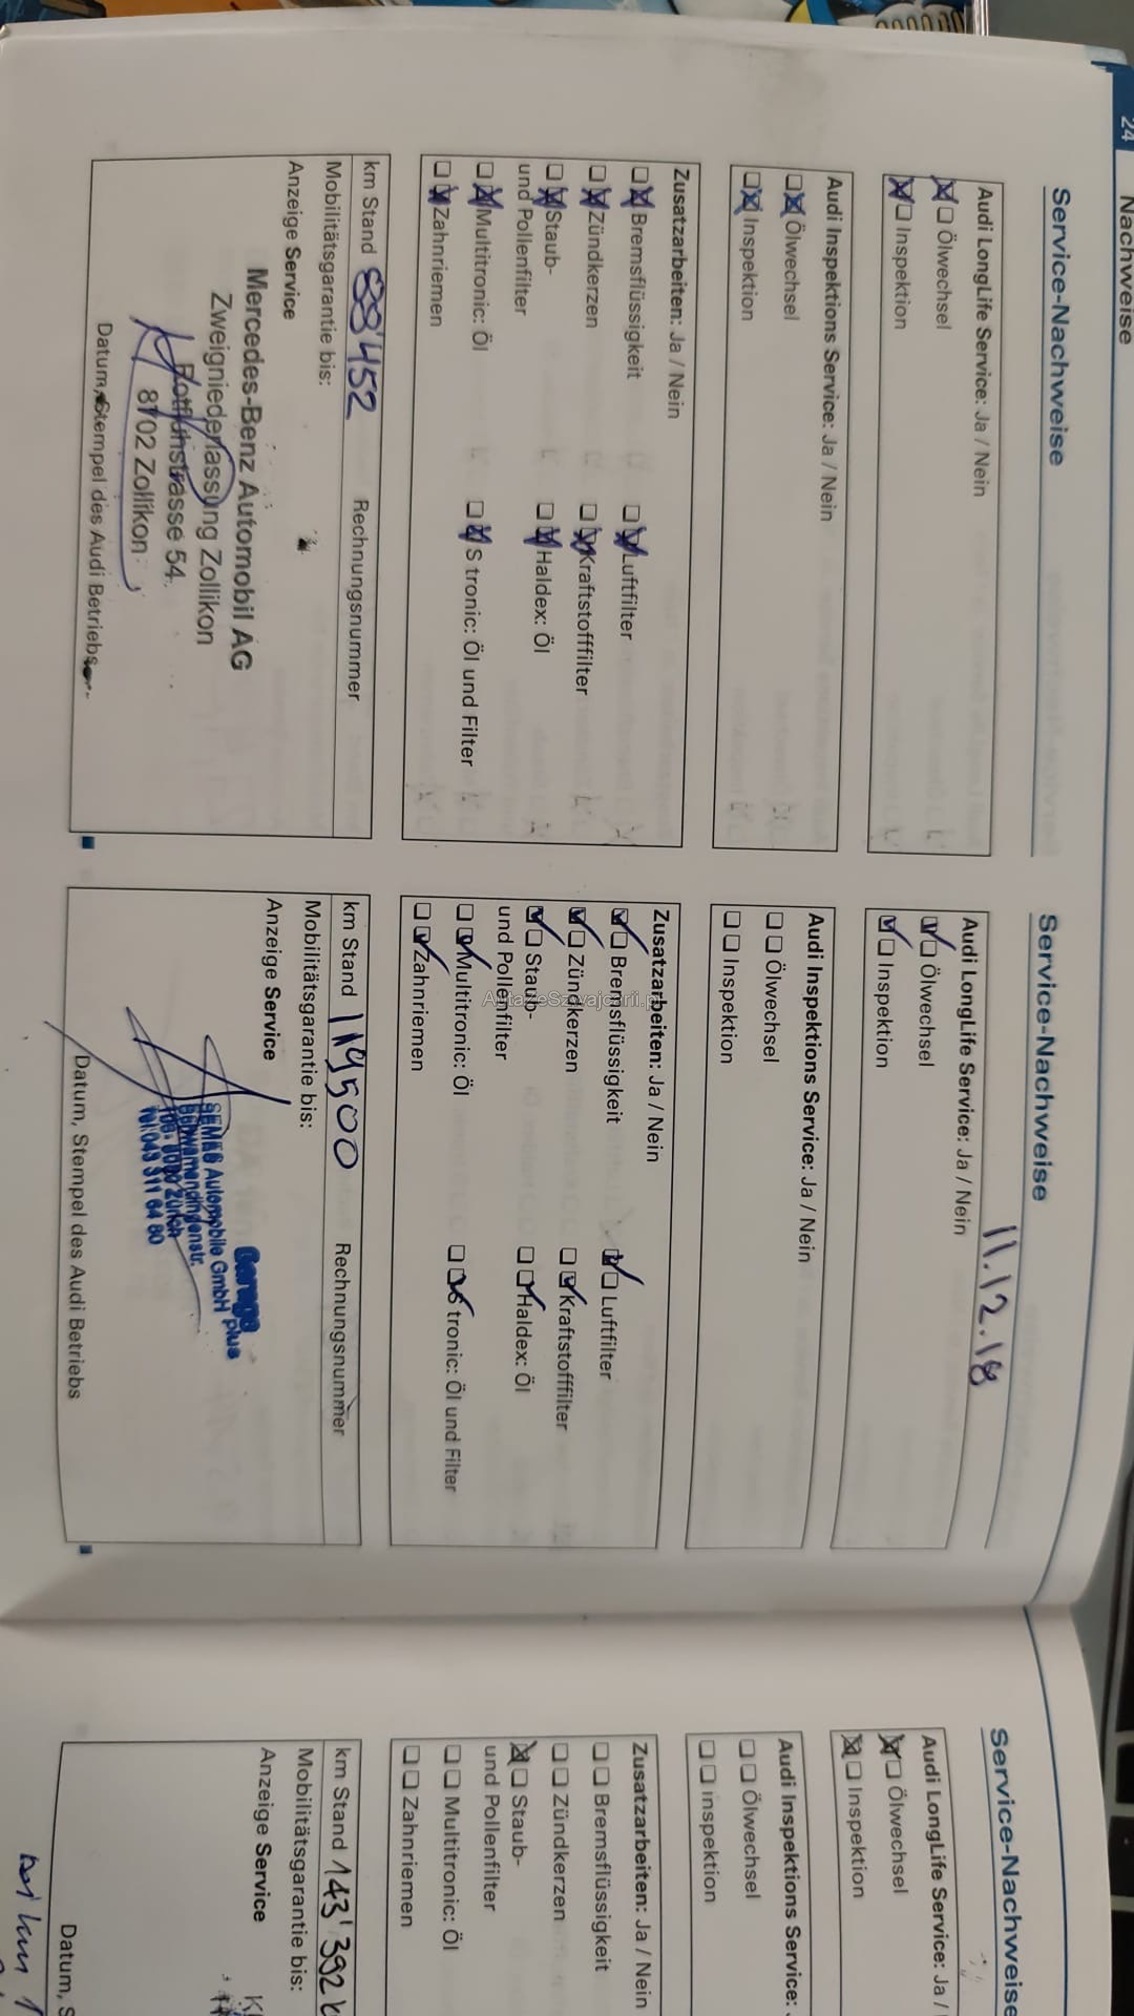 24
Nachweise
Service-Nachweise
Audi LongLife Service: Ja / Nein
Ölwechsel
Inspektion
Audi Inspektions Service: Ja / Nein
Ölwechsel
Inspektion
Zusatzarbeiten: Ja / Nein
Bremsflüssigkeit
Luftfilter
Zündkerzen
Kraftstofffilter
Staub-
und Pollenfilter
Haldex: Öl
Multitronic: Öl
S tronic: Öl und Filter
Zahnriemen
km Stand 88'452
Rechnungsnummer
Mobilitätsgarantie bis:
Anzeige Service
Mercedes-Benz Automobil AG
Zweigniederlassung Zollikon
Rotfluhstrasse 54
8702 Zollikon
Datum, Stempel des Audi Betriebs
Service-Nachweise
11.12.18
Audi LongLife Service: Ja / Nein
Ölwechsel
Inspektion
Audi Inspektions Service: Ja / Nein
Ölwechsel
Inspektion
Zusatzarbeiten: Ja / Nein
Bremsflüssigkeit
Luftfilter
Zündkerzen
Kraftstofffilter
Staub-
und Pollenfilter
Haldex: Öl
Multitronic: Öl
S tronic: Öl und Filter
Zahnriemen
km Stand 119500
Rechnungsnummer
Mobilitätsgarantie bis:
Anzeige Service
Garage plus
SEMAS Automobile GmbH
Zürich
Datum, Stempel des Audi Betriebs
Service-Nachweise
Audi LongLife Service: Ja /
Ölwechsel
Inspektion
Audi Inspektions Service:
Ölwechsel
inspektion
Zusatzarbeiten: Ja / Nein
Bremsflüssigkeit
Zündkerzen
Staub-
und Pollenfilter
Multitronic: Öl
Zahnriemen
km Stand 143'392
Mobilitätsgarantie bis:
Anzeige Service
Datum, S